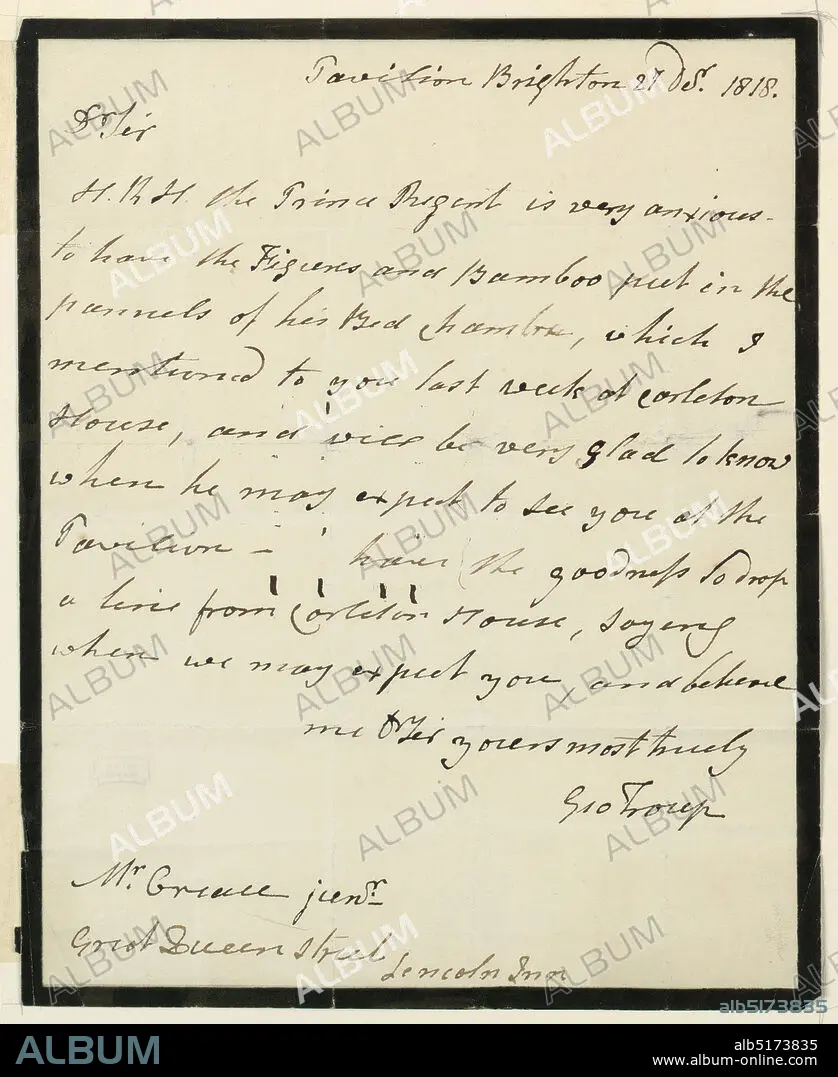 Pavilion Brighton 27 Dr. 1818.
Dr. Sir
H. R H. the Prince Regent is very anxious
to have the Figures and Bamboo put in the
pannels of his Bed Chamber, which I
mentioned to you last week at Carleton
House, and will be very glad to know
when he may expect to see you at the
Pavilion - have the goodness to drop
a line from Carleton House, saying
when we may expect you, and believe
me Dr Sir yours most truly
Geo Troup
Mr. Creace junr.
Great Queen Street
Lincoln Inn
ALBUM
alb5173835
ALBUM
alb5173835
www.album-online.com